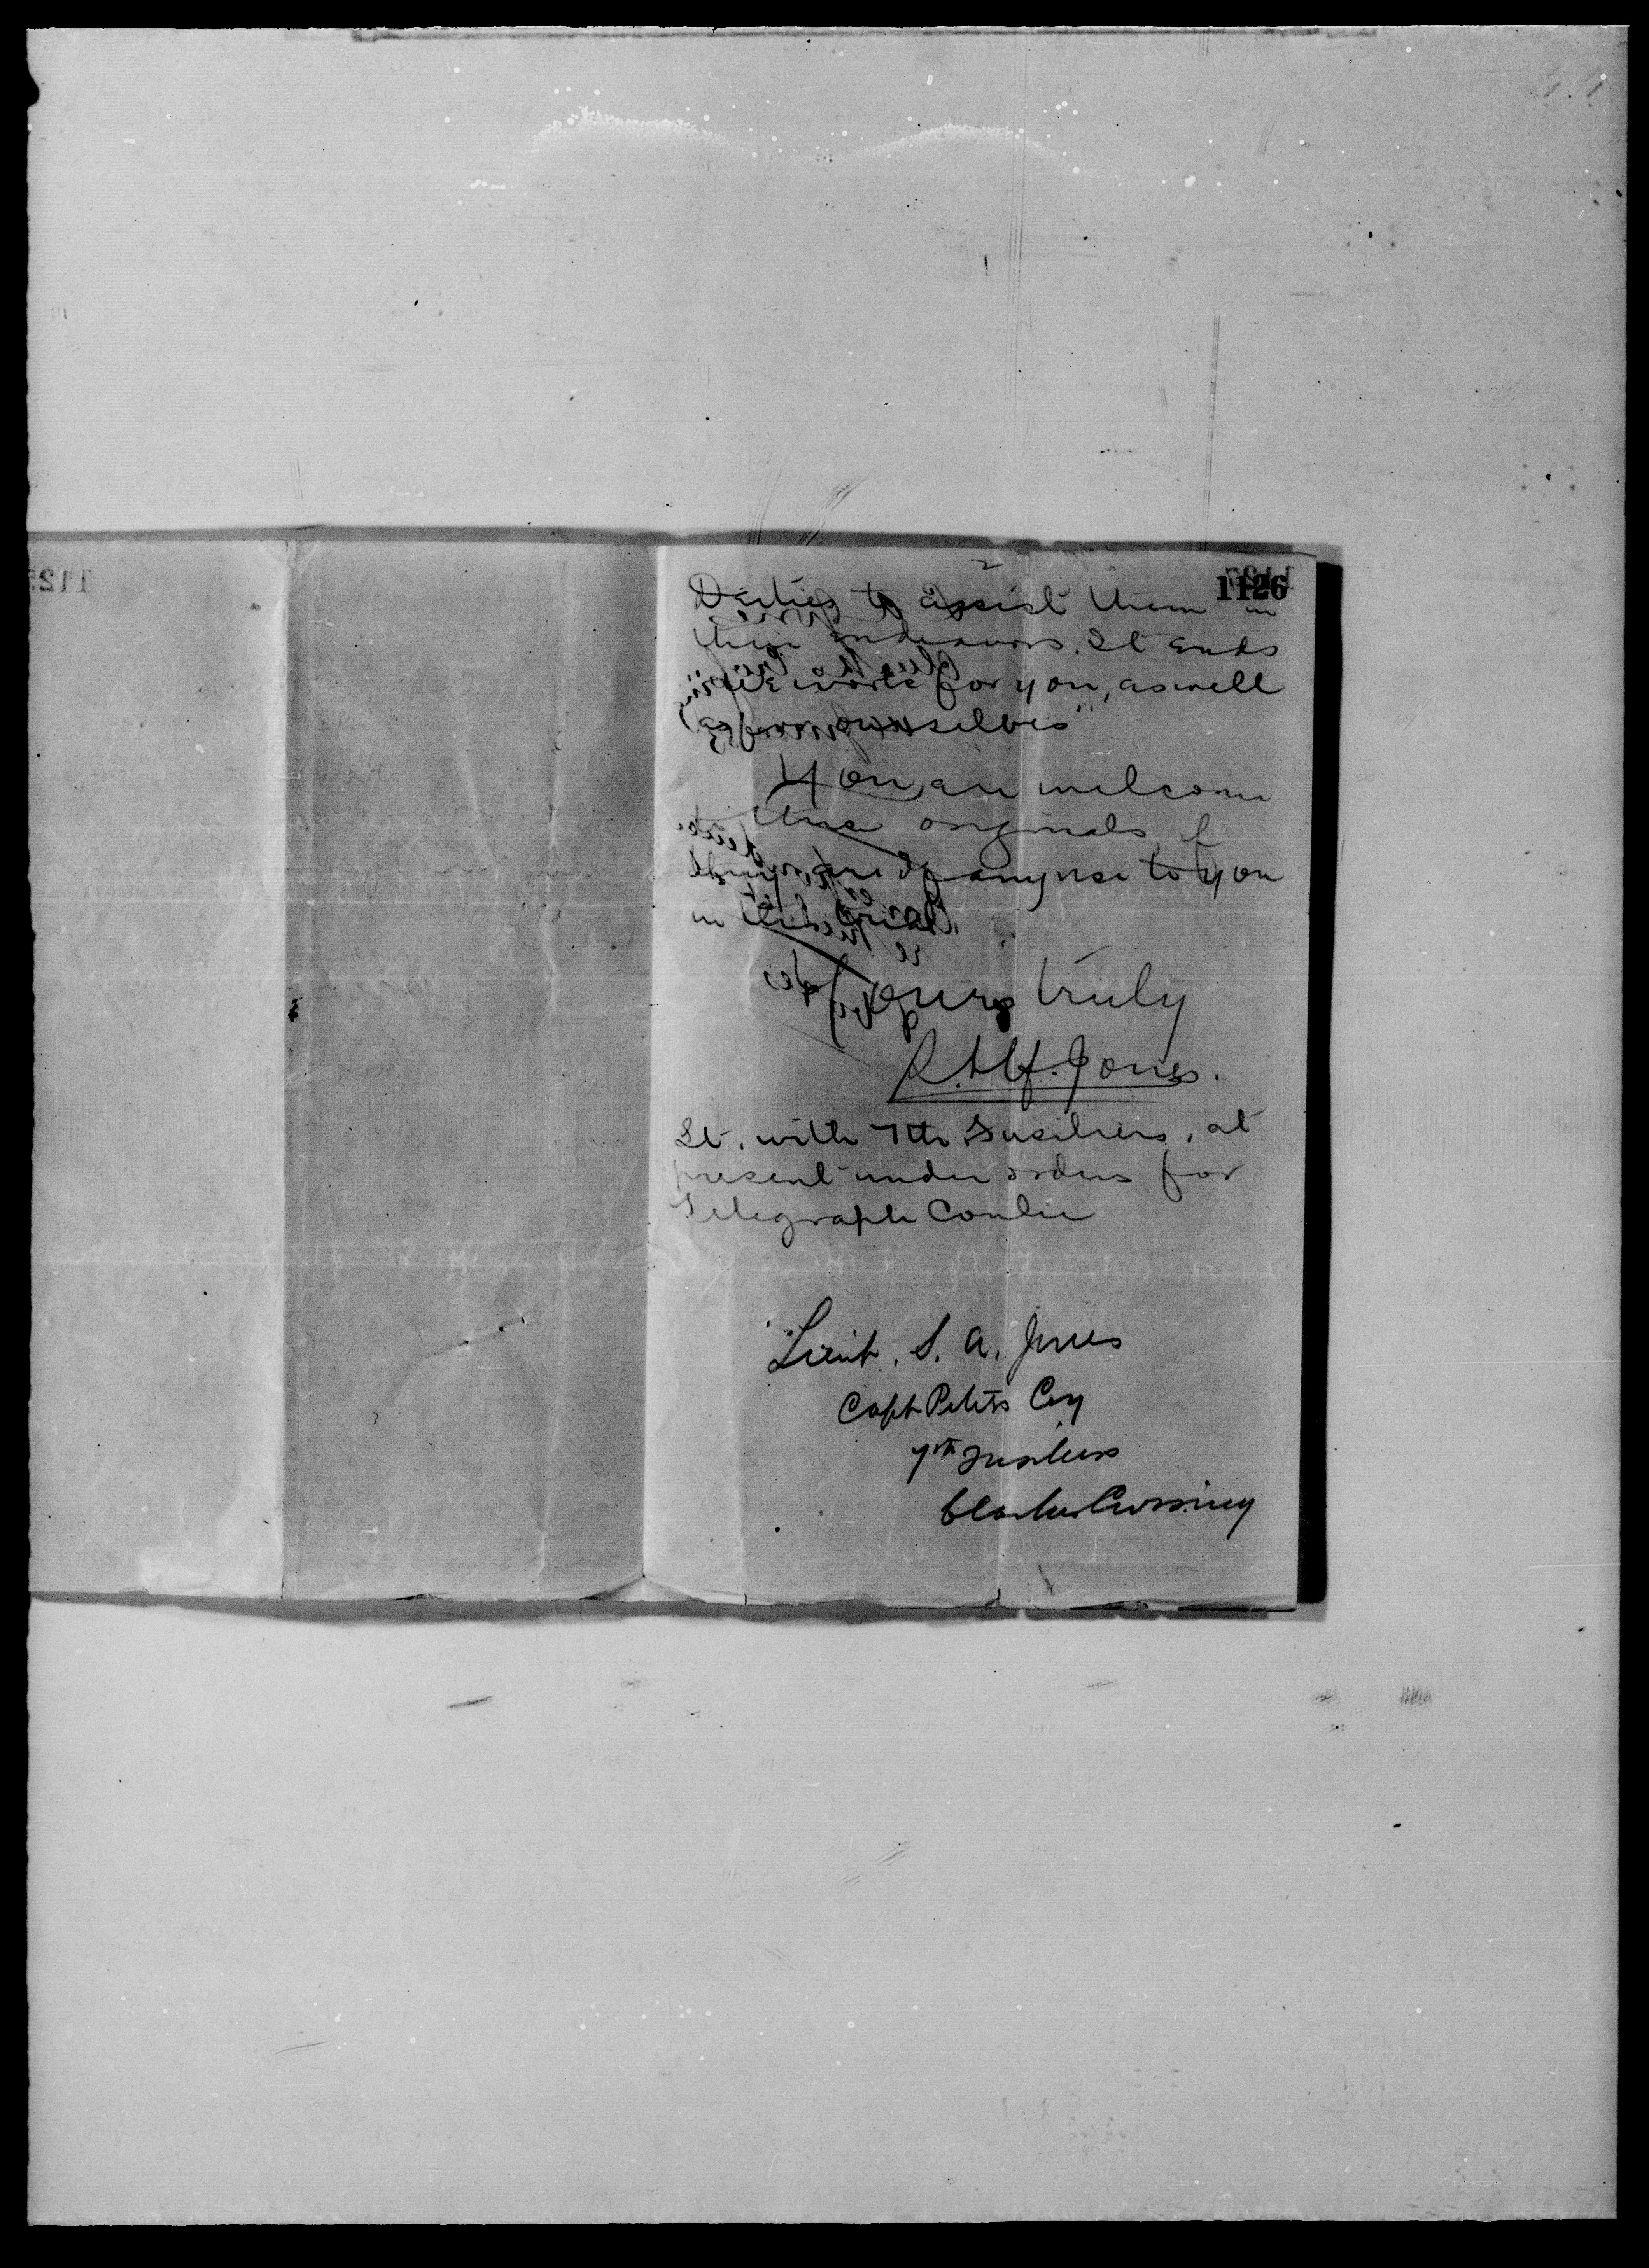 1126
Parties to assist them in
their endeavors. It ends
"We work for you, as well
as for ourselves"
You are welcome
to the originals if
they are of any use to you
in the trial.
Yours truly
Jones.
Lt. with 7th Fusiliers, at
present under orders for
Telegraph Coulie
Lieut. S. A. Jones
Capt Peters Coy
7th Fusiliers
Clarkes Crossing